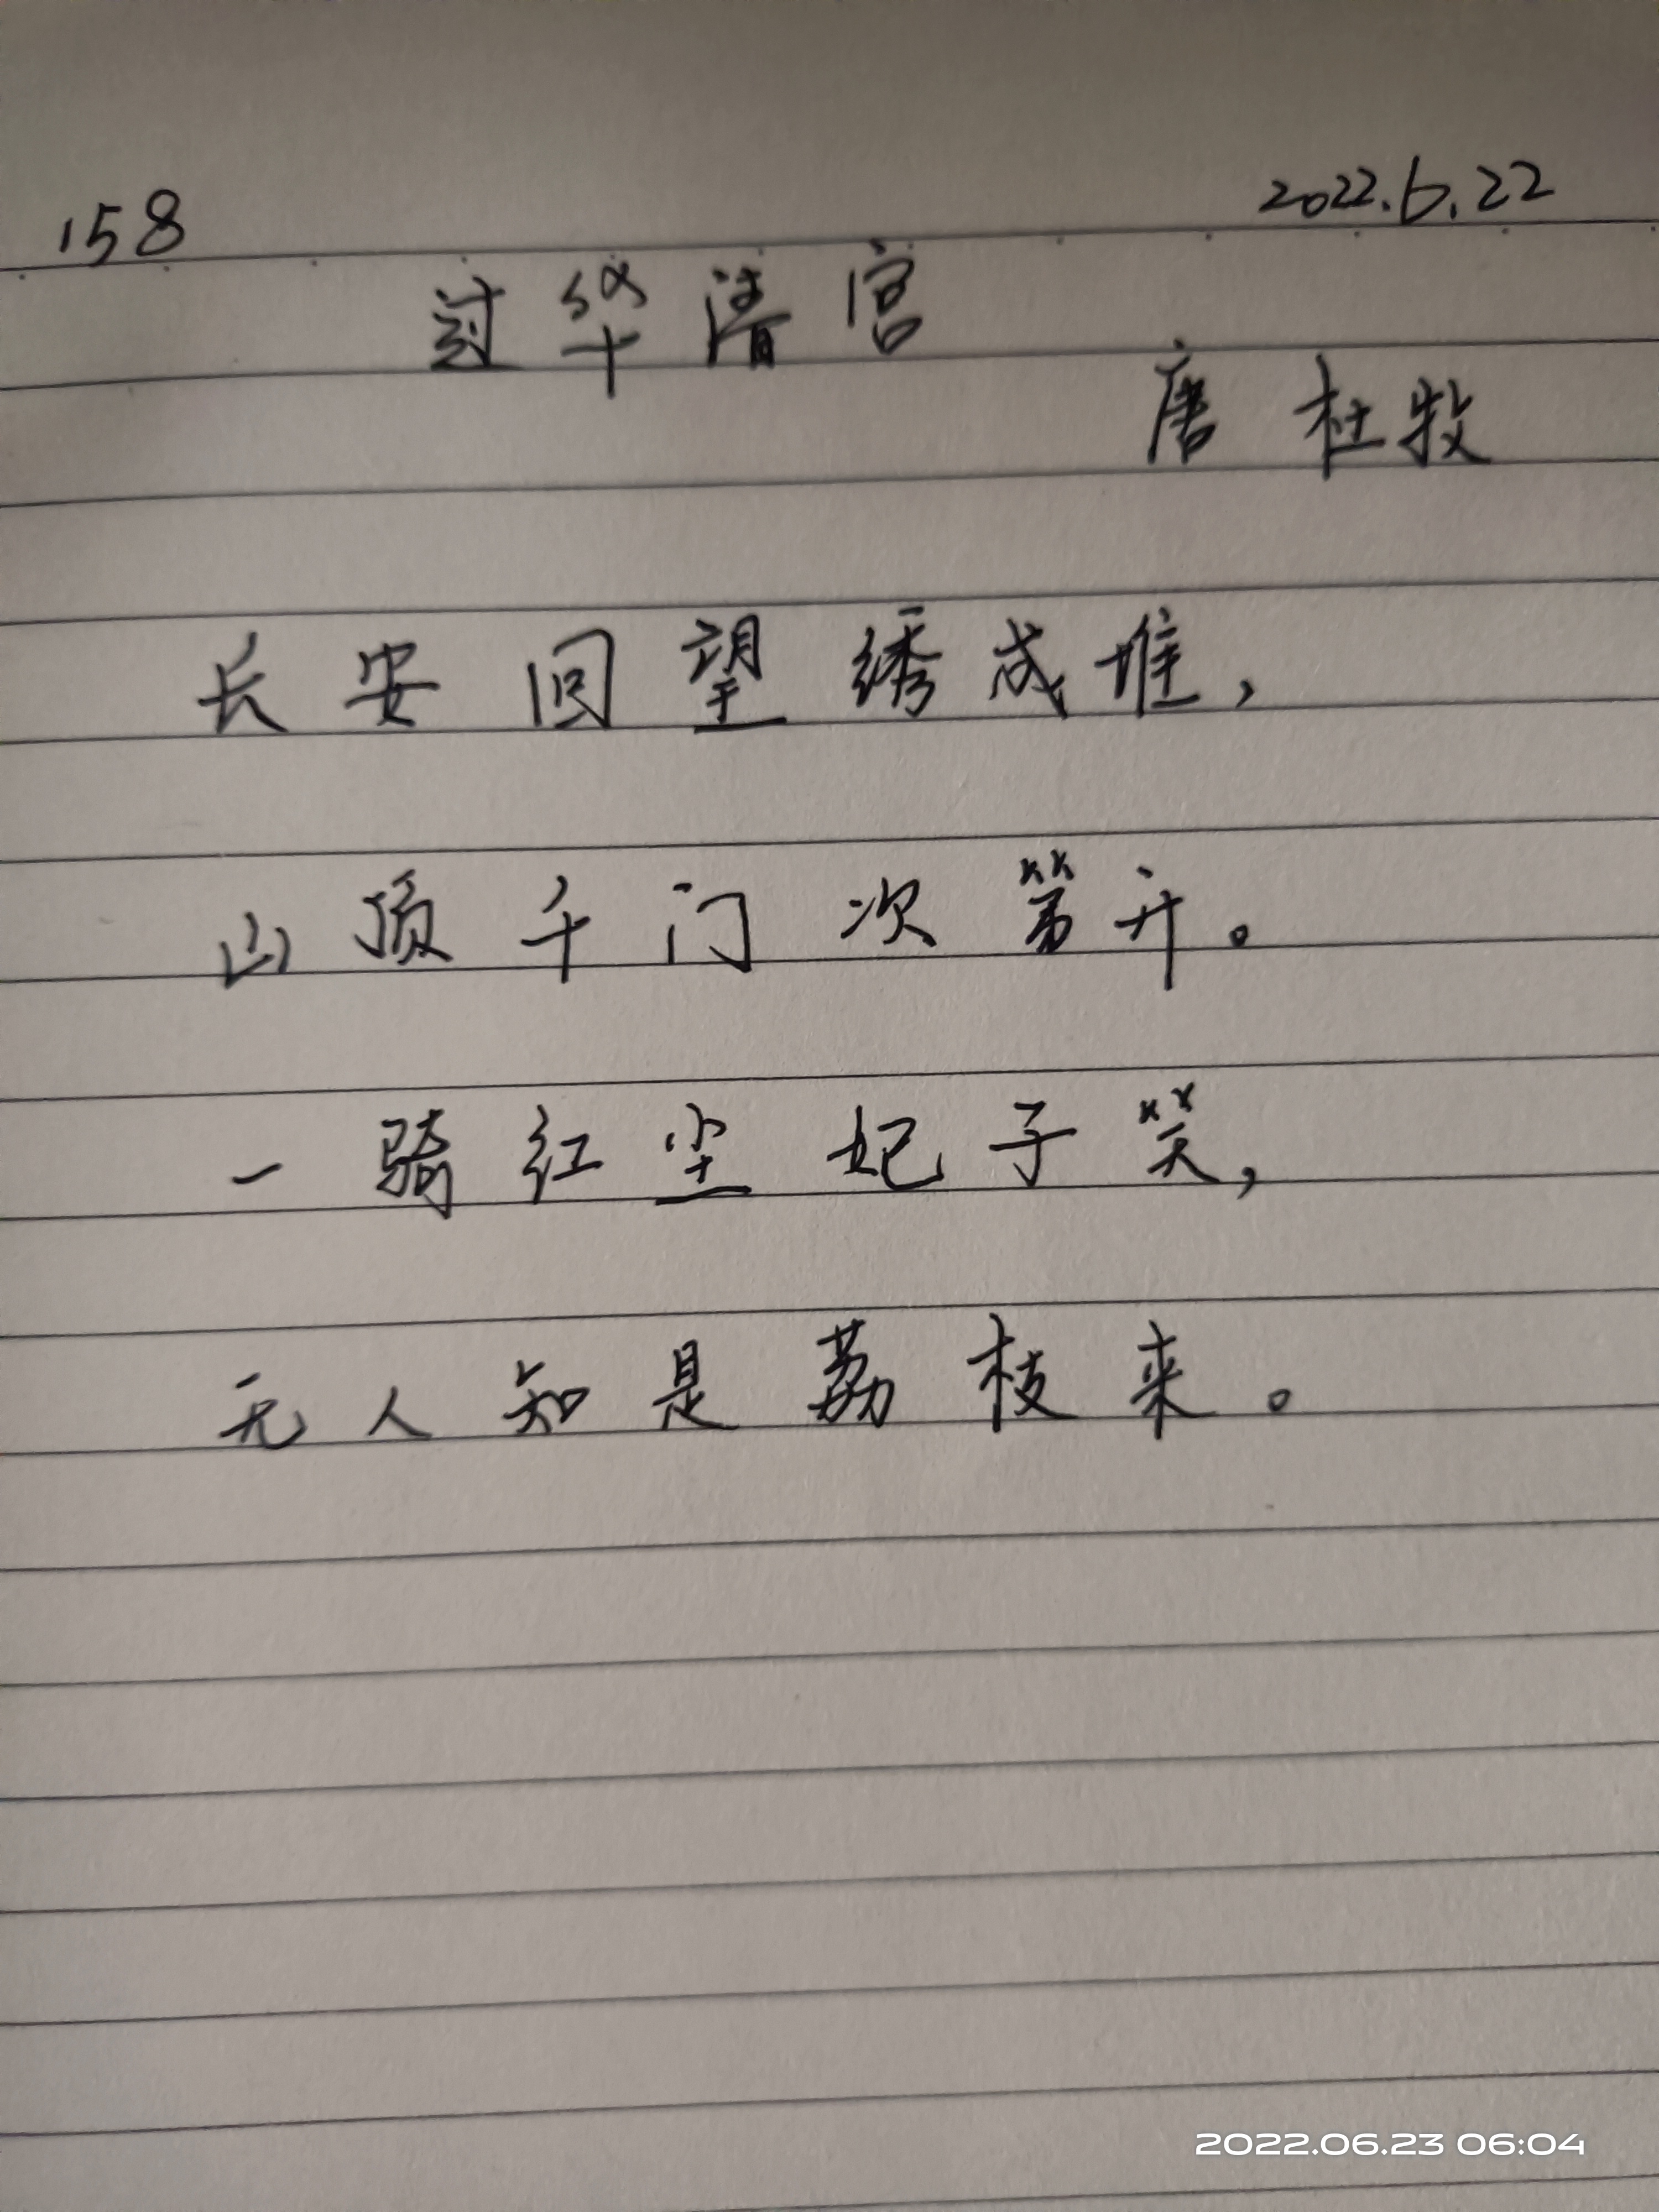 158 2022.6.22
过华清宫
唐 杜牧
长安回望绣成堆，
山顶千门次第开。
一骑红尘妃子笑，
无人知是荔枝来。
2022.06.23 06:04